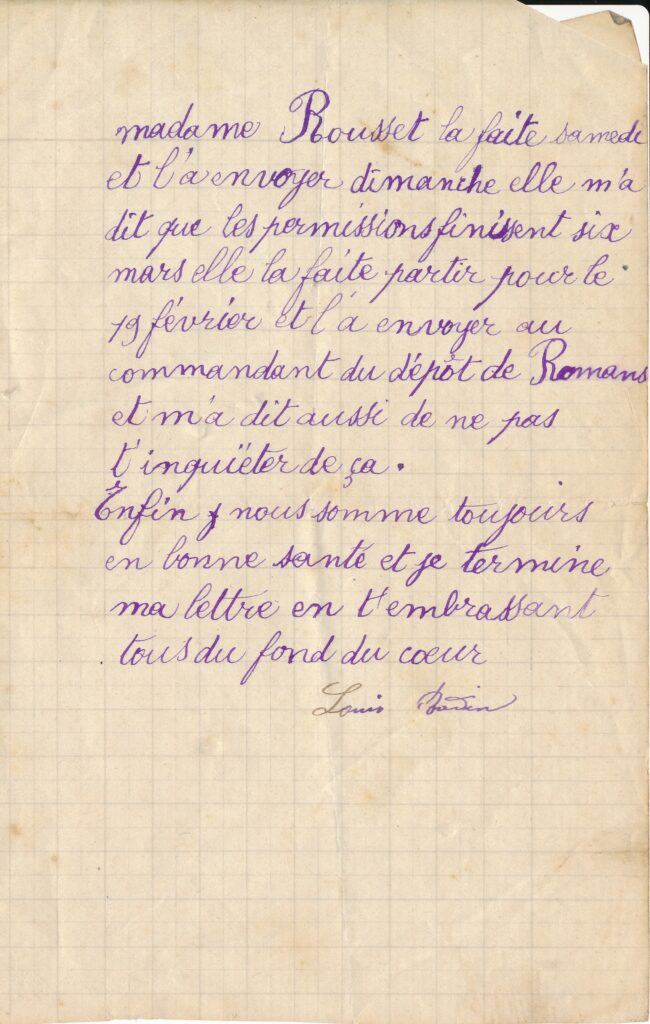 madame Rousset la faite samedi
et l'a envoyer dimanche elle m'a
dit que les permissions finissent six
mars elle la faite partir pour le
19 février et l'a envoyer au
commandant du dépôt de Romans
et m'a dit aussi de ne pas
t'inquiëter de ça.
Enfin nous somme toujours
en bonne santé et je termine
ma lettre en t'embrassant
tous du fond du cœur
Louis Badin